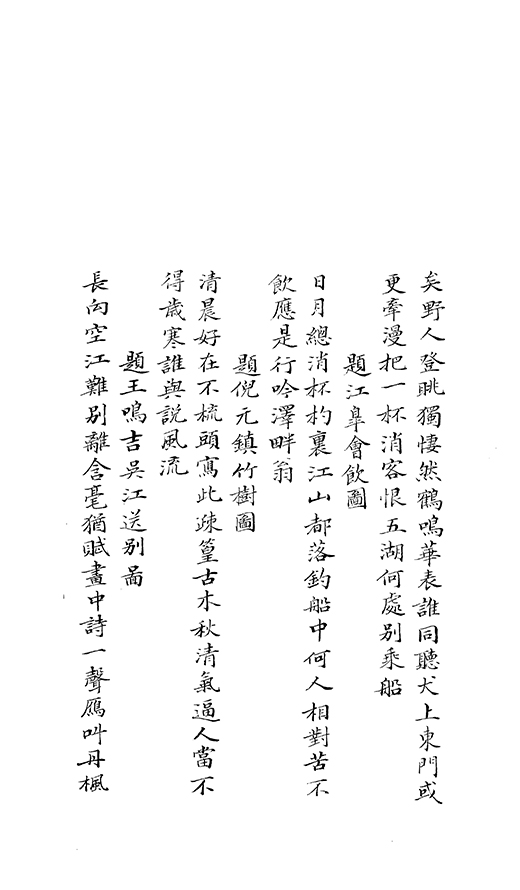 矣野人登眺獨悽然鶴鳴華表誰同聽犬上東門或
更牽漫把一杯消客恨五湖何處別乘船
題江皐會飲圖
日月總消杯杓裏江山都落釣船中何人相對苦不
飲應是行吟澤畔翁
題倪元鎮竹樹圖
清晨好在不梳頭寫此疎篁古木秋清氣逼人當不
得歲寒誰與説風流
題王鳴吉吳江送别啚
長向空江難别離含毫猶賦畫中詩一聲鴈叫丹楓